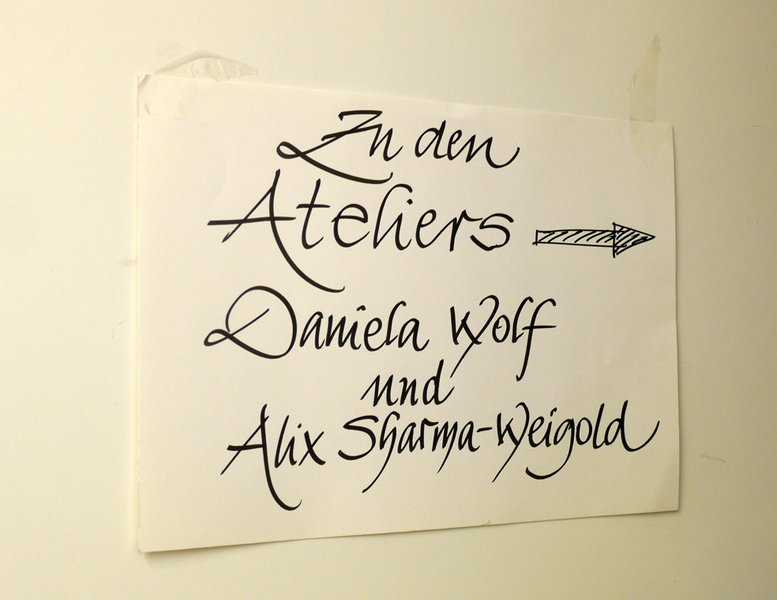 Zu den
Ateliers
Daniela Wolf
und
Alix Sharma-Weigold